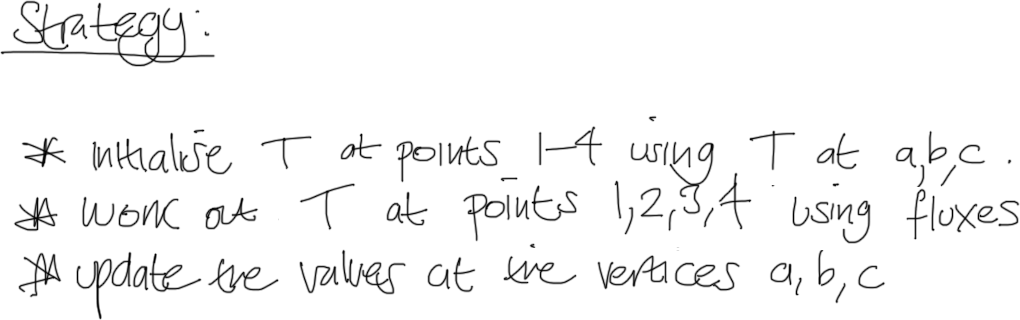 Strategy:
* initialise T at points 1-4 using T at a,b,c.
* work out T at points 1,2,3,4 using fluxes
* update the values at the vertices a, b, c